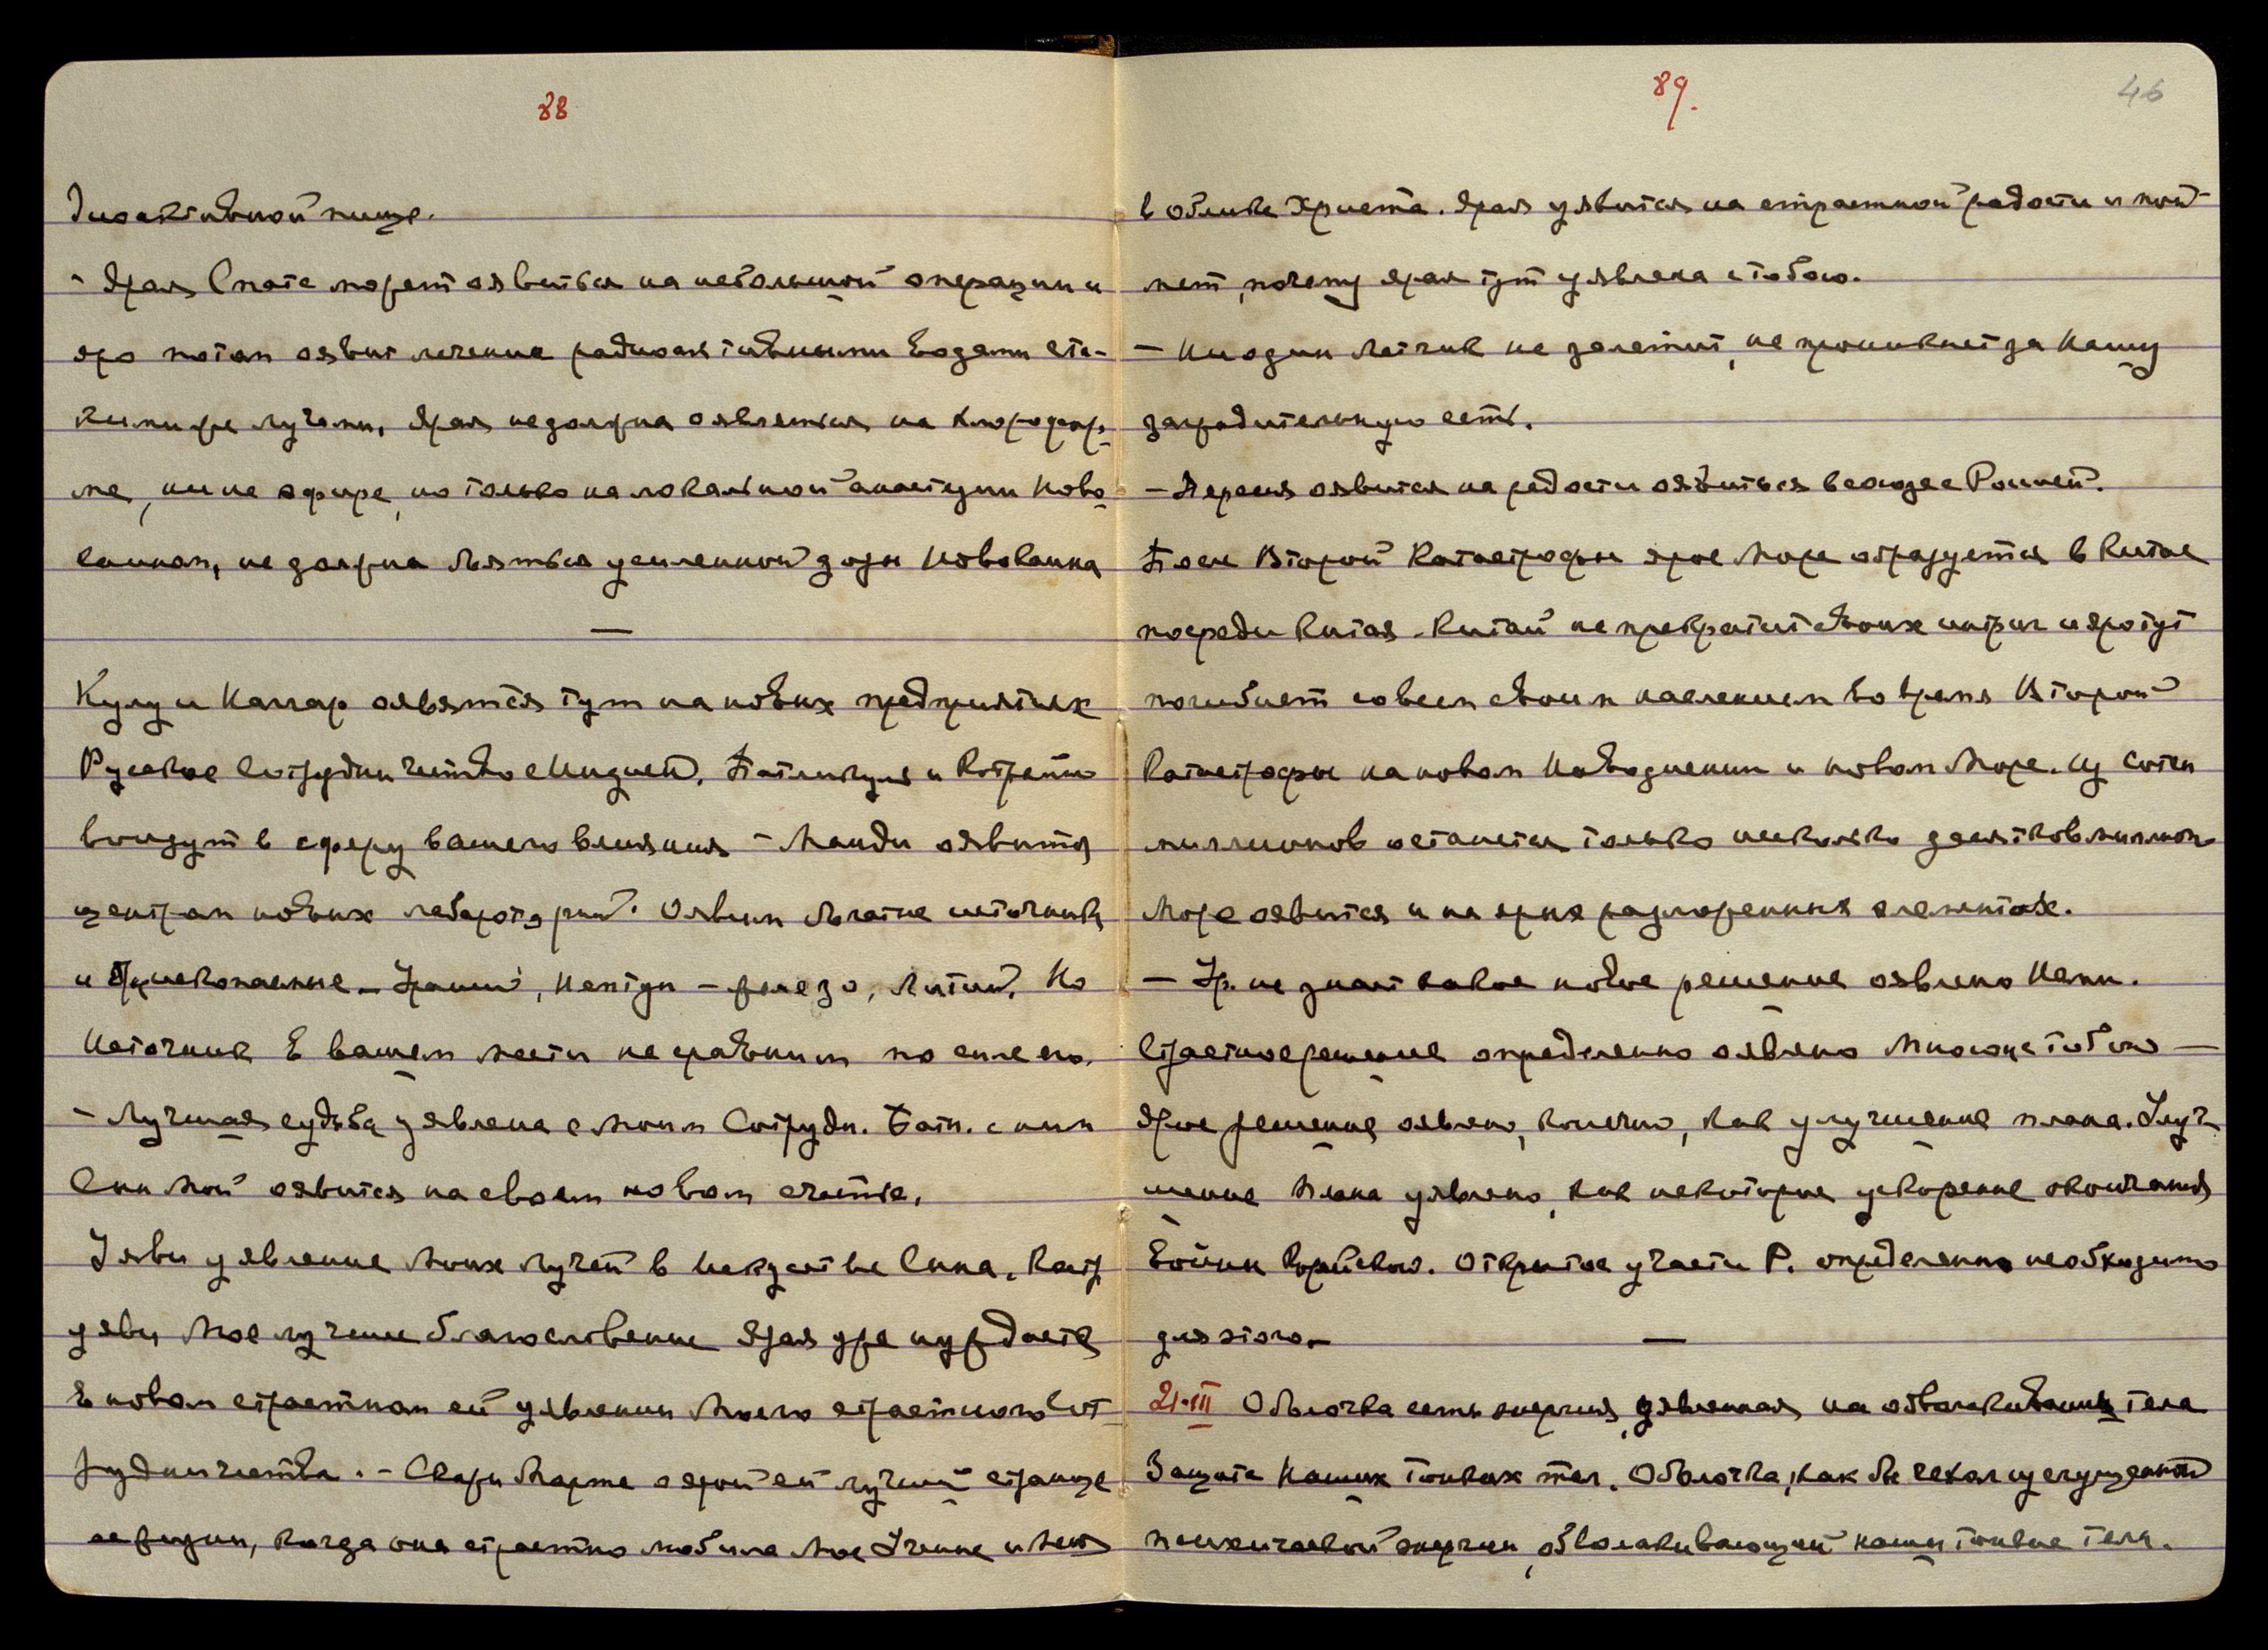 88
диоактивной пище.
- Ярая Спате может оявиться на небольшой операции и
яро потом оявит лечение радиоактивными водами и та-
кими же лучами, Ярая не должна оявляться на хлорофор-
ме, ни на эфире, но только на локальной анастезии Ново
каином, не должна бояться усиленной дозы Новокаина
—
Кулу и Наггар оявятся тут на новых предприятиях
Русское Сотрудничество с Индией. и
войдут в сферу вашего влияния - Манди оявится
центром новых лабораторий. Оявим богатые источники
и Ископаемые - Ураний, Нептун - железо, Литий. Но
Источник в вашем месте не сравним по силе его.
- Лучшая судьба уявлена с Моим Сотрудн. с ним
Сын Мой оявится на своем новом счастье.
Уяви уявление Моих Лучей в Искусстве Сына,
уяви Мое лучшее благословение Ярая уже нуждается
в новом страстном ей уявлении Моего страстного Сот
рудничества. - Скажи Марте о ярой ей лучшей странице
ее жизни, когда она страстно любила Мое Учение и Меня
89.
46
в облике Христа. Ярая уявится на страстной радости и пой-
мет, почему ярая тут уявлена с тобою.
- Ни один Летчик не залетит, не проникнет за Нашу
заградительную сеть.
- Персия оявится на радости оявиться в союзе с Россией.
После Второй Катастрофы ярое Море образуется в Китае
посреди Китая. Китай не прекратит своих интриг и яро тут
погибнет со всем своим населением во время Второй
Катастрофы на новом Наводнении и новом Море. Из Сотен
миллионов останется только несколько десятков миллион.
Море оявится и на ярых разложенных элементах.
- Ур. не знает какое новое решение оявлено Нами.
Страстное решение определенно оявлено Мною и с тобою —
Ярое решение оявлено, конечно, как улучшение плана. Улуч-
шение Плана уявлено, как некоторое ускорение окончания
Войны Корейской. Открытое участи Р. определенно необходимо
для этого. —
21.III Оболочка есть энергия, уявленная на обволакивании тела
Защита Наших тонких тел. Оболочка, как бы чехол из сгущенной
психической энергии, обволакивающей наши тонкие тела.